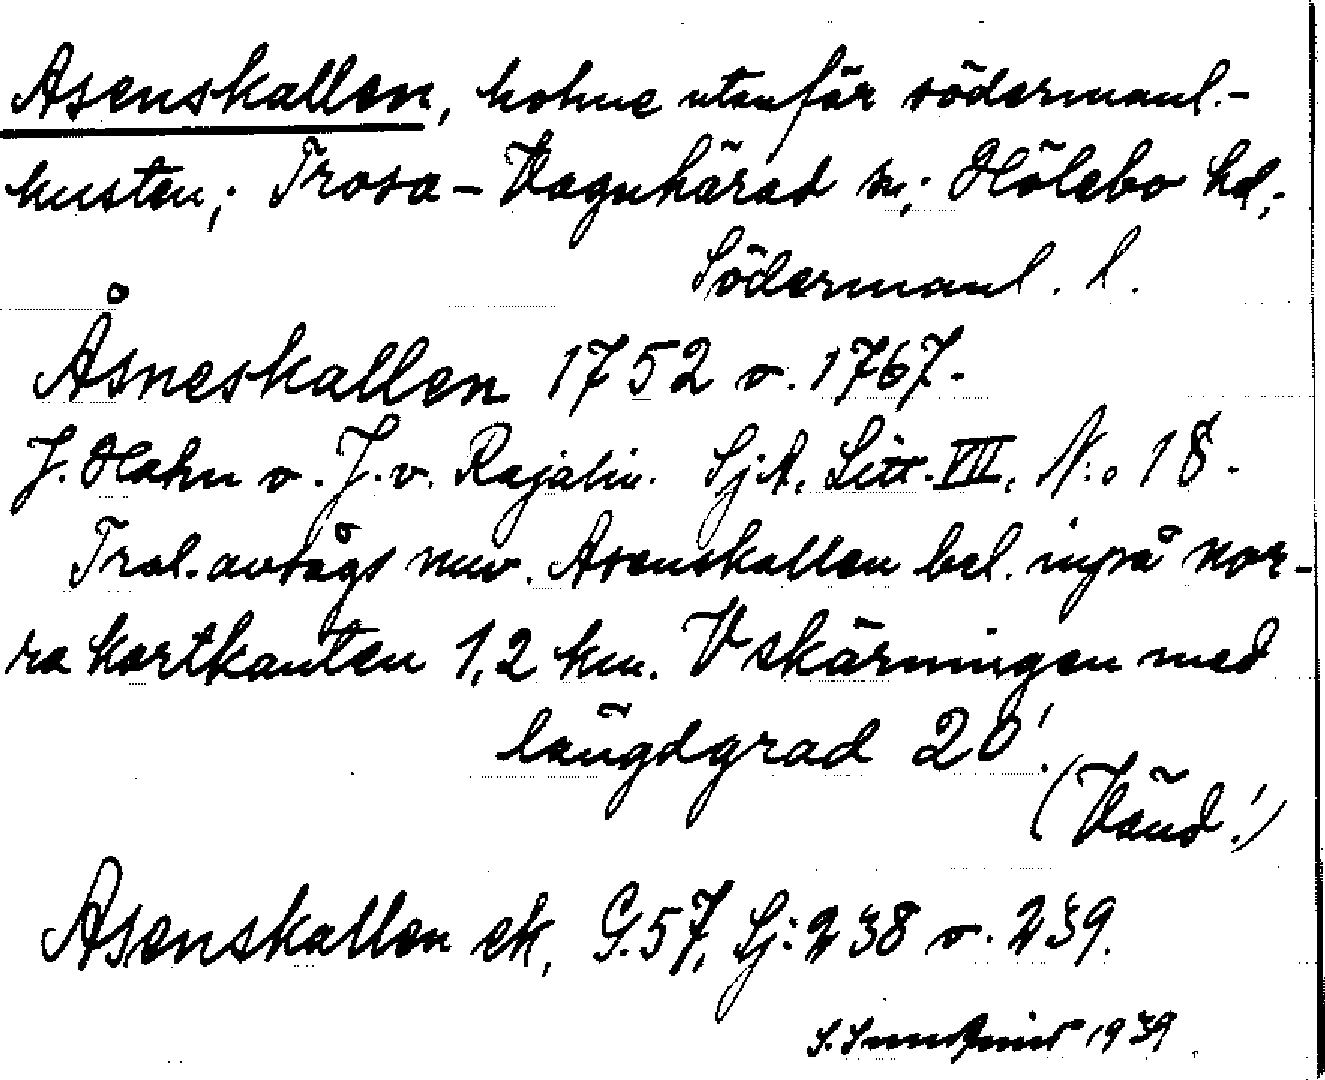 Asenskallen, holme utanför södermanl.-
kusten; Trosa-Vagnhärad sn; Hölebo hd;
Södermanl. l.
Åsneskallen 1752 o. 1767.
J. Hahn o. J. v. Rajalin. SjA. Litt. VII, N:o 18.
Trol. avsågs nuv. Asenskallen bel. inpå nor-
ra kortkanten 1,2 km. V skärningen med
längdgrad 20'.
(Vänd!)
Asenskallen ek, G.57, Sj: 238 o. 239.
1939